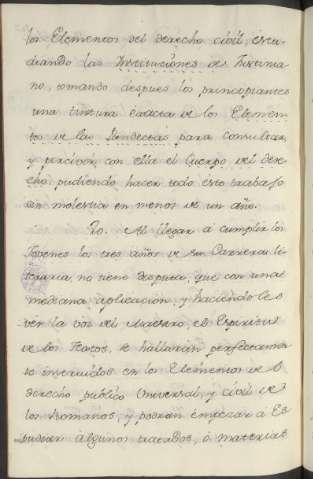 los Elementos del derecho civil, estu-
diando las Instituciones de Justinia-
no, tomando despues los principiantes
una tintura exacta de los Elemen-
tos de las Pandectas para consultar,
y practicar con ella el Cuerpo del dere-
cho, pudiendo hacer todo ésto trabajo
sin molestia en menos de un año.
20. Al llegar á cumplir los
Jovenes los tres años de su Carrera li-
teraria, no tiene disputa, que con una
mediana aplicacion, y haciendoles
ver la voz del Maestro, el Espiritu
de los Textos, se hallarian perfectamen-
te instruidos en los Elementos de el
derecho publico Universal, y civil de
los Romanos, y podrán empezar á Es-
algunos tratados, ó materias